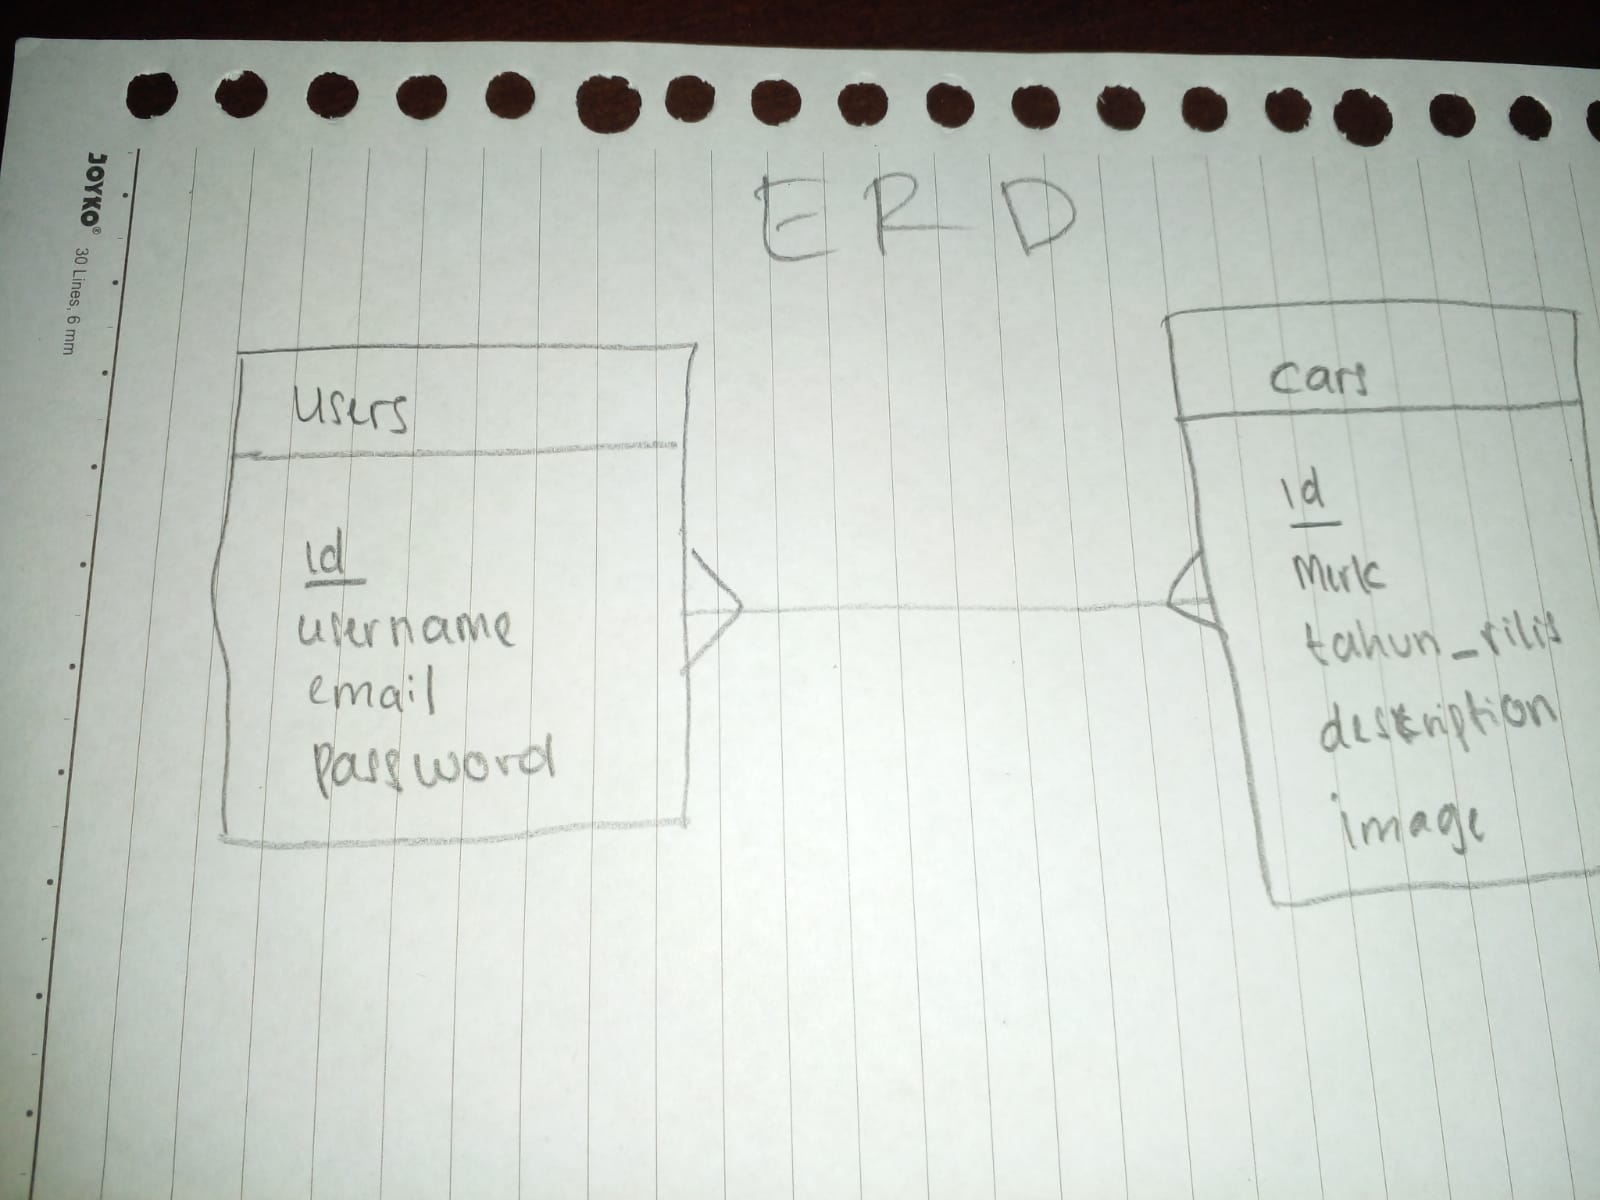 JOYKO®
30 Lines, 6 mm
ERD
users
id
username
email
password
cars
id
Merk
tahun_rilis
description
image